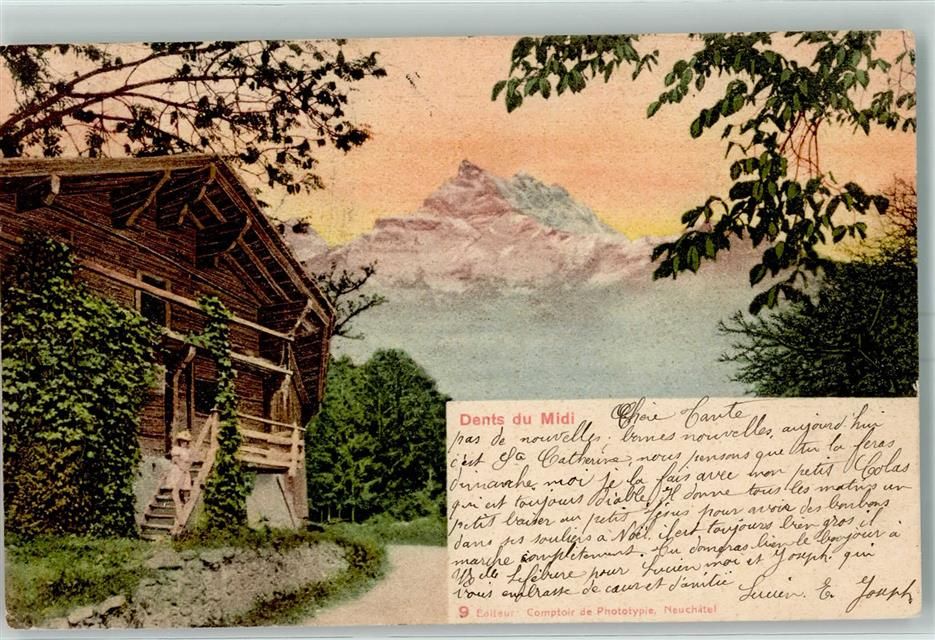 Dents du Midi
Chère Tante
pas de nouvelles, bonnes nouvelles, aujourd'hui
c'est Ste Catherine, nous pensons que tu la feras
dimanche, moi je la fais avec mon petit Colas
qui est toujours Diable, Il donne tous les matins un
petit baiser au petit Jésus pour avoir des bonbons
dans ses souliers à Noël. il est toujours bien gros, il
marche complètement. Tu donneras bien le bonjour à
Melle Lefébure pour Lucien moi et Joseph. qui
vous embrasse de cœur et d'amitié
Lucien. E. Joseph
9 Editeur: Comptoir de Phototypie, Neuchâtel